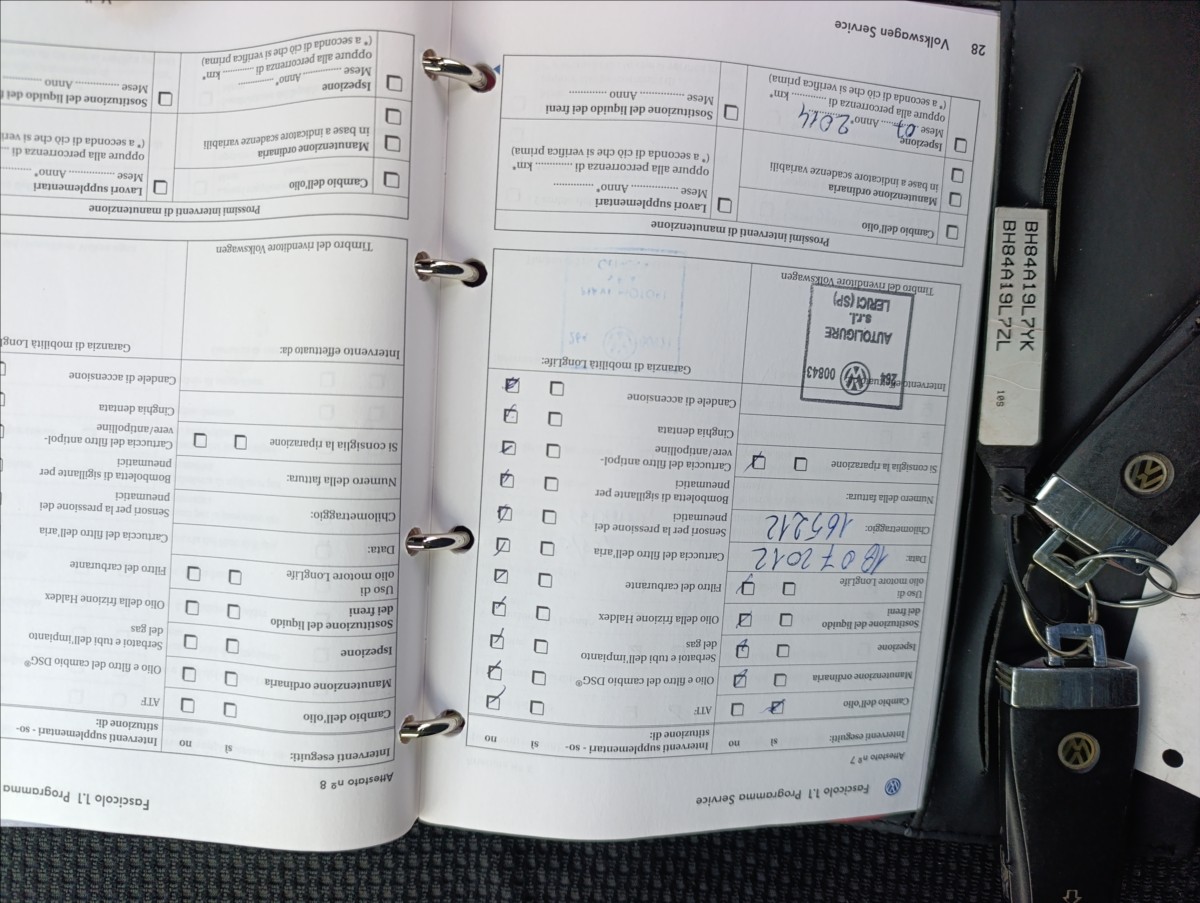 Fascicolo 1.1 Programma Service
Attestato nº 7
Interventi eseguiti: sì no
Cambio dell'olio
Manutenzione ordinaria
Ispezione
Sostituzione del liquido
dei freni
Uso di
olio motore LongLife
Data: 18 07 2012
Chilometraggio: 165212
Numero della fattura:
Si consiglia la riparazione
Timbro del rivenditore Volkswagen
284 00843
AUTOLIGURE
s.r.l.
LERICI (SP)
Interventi supplementari - so-
stituzione di: sì no
ATF
Olio e filtro del cambio DSG®
Serbatoi e tubi dell'impianto
del gas
Olio della frizione Haldex
Filtro del carburante
Cartuccia del filtro dell'aria
Sensori per la pressione dei
pneumatici
Bomboletta di sigillante per
pneumatici
Cartuccia del filtro antipol-
vere/antipolline
Cinghia dentata
Candele di accensione
Garanzia di mobilità LongLife:
Prossimi interventi di manutenzione
Cambio dell'olio
Manutenzione ordinaria
in base a indicatore scadenze variabili
Ispezione
Mese 07 Anno* 2014
oppure alla percorrenza di ............ km*
(* a seconda di ciò che si verifica prima)
Lavori supplementari
Mese ................ Anno* ..............
oppure alla percorrenza di ............ km*
(* a seconda di ciò che si verifica prima)
Sostituzione del liquido dei freni
Mese ................ Anno ..............
28 Volkswagen Service
Fascicolo 1.1 Programma
Attestato nº 8
Interventi eseguiti: sì no
Cambio dell'olio
Manutenzione ordinaria
Ispezione
Sostituzione del liquido
dei freni
Uso di
olio motore LongLife
Data:
Chilometraggio:
Numero della fattura:
Si consiglia la riparazione
Intervento effettuato da:
Timbro del rivenditore Volkswagen
Interventi supplementari - so-
stituzione di:
ATF
Olio e filtro del cambio DSG®
Serbatoi e tubi dell'impianto
del gas
Olio della frizione Haldex
Filtro del carburante
Cartuccia del filtro dell'aria
Sensori per la pressione dei
pneumatici
Bomboletta di sigillante per
pneumatici
Cartuccia del filtro antipol-
vere/antipolline
Cinghia dentata
Candele di accensione
Garanzia di mobilità
Prossimi interventi di manutenzione
Cambio dell'olio
Manutenzione ordinaria
in base a indicatore scadenze variabili
Ispezione
Mese ................ Anno* ..............
oppure alla percorrenza di ............ km*
(* a seconda di ciò che si verifica prima)
Lavori supplementari
Mese ................ Anno*
oppure alla percorrenza di
(* a seconda di ciò che si
Sostituzione del liquido dei
Mese ................ Anno
BH84A19L7YK
BH84A19L7ZL